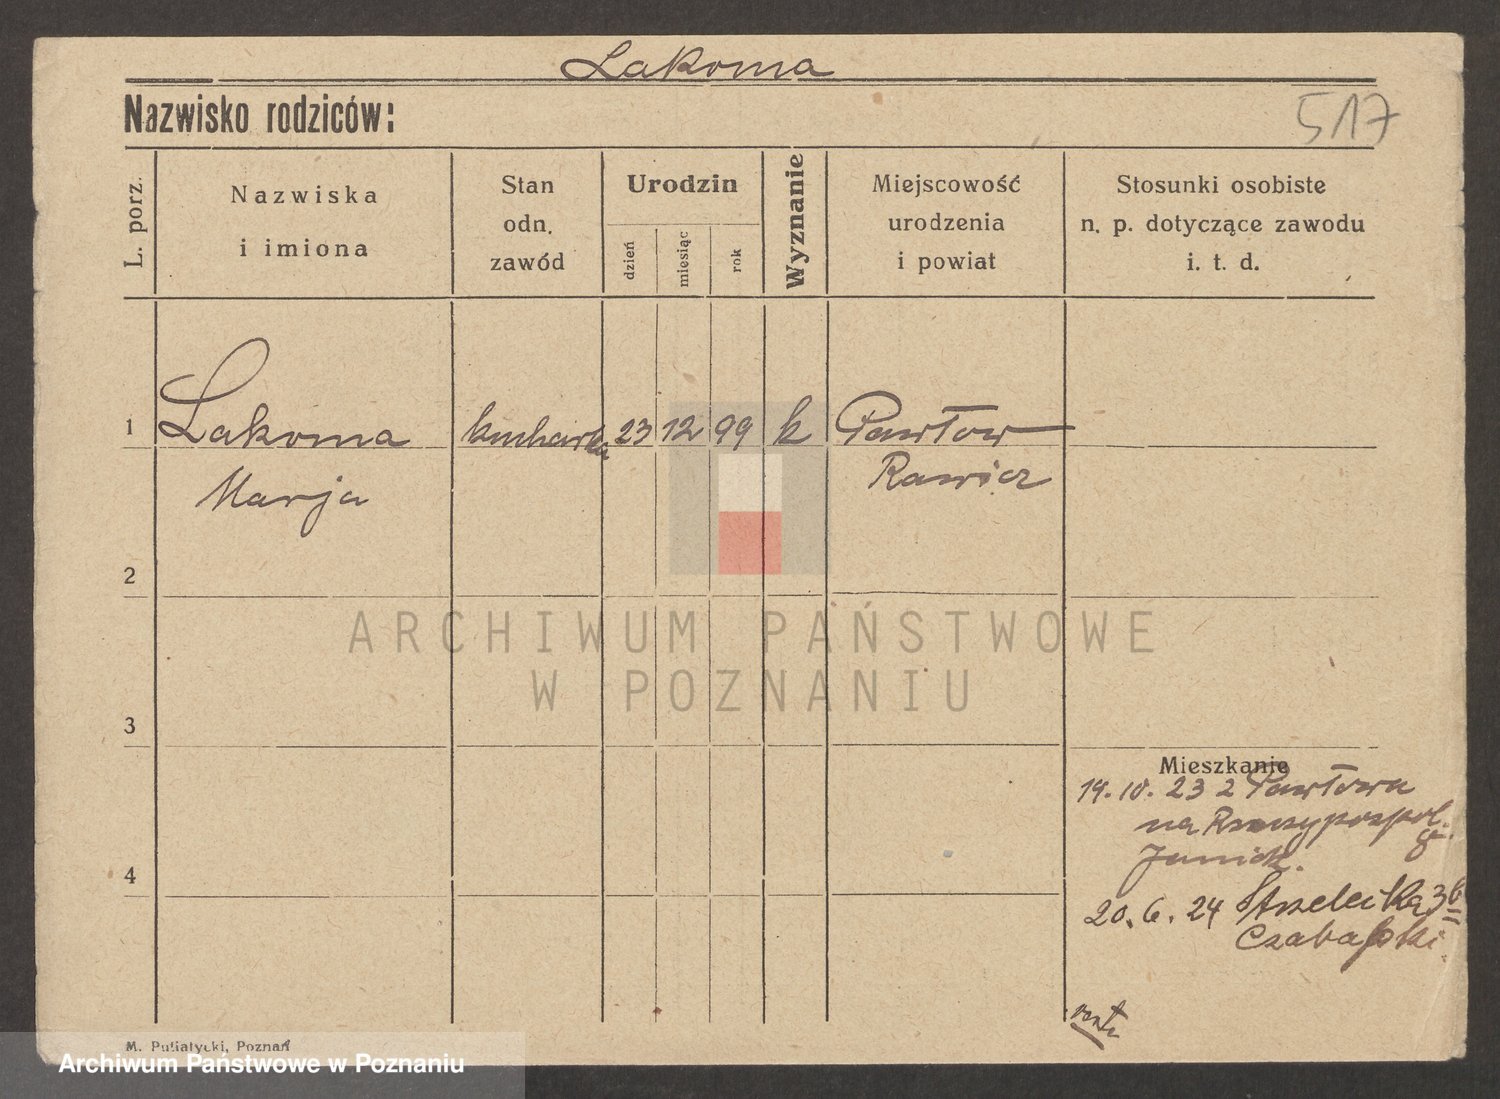 Lakoma
Nazwisko rodziców:
517
L. porz.
Nazwiska
i imiona
Stan
odn.
zawód
Urodzin
dzień
miesiąc
rok
Wyznanie
Miejscowość
urodzenia
i powiat
Stosunki osobiste
n. p. dotyczące zawodu
i. t. d.
1
Lakoma
Marja
kucharka
23
12
99
k
Pawłow
Rawicz
2
3
4
ARCHIWUM PAŃSTWOWE
W POZNANIU
Mieszkanie
19. 10. 23 z Pawłowa
na Rzeczypospol.
8
20. 6. 24 Strzelecka 3b
M. Putiatycki, Poznań
Archiwum Państwowe w Poznaniu